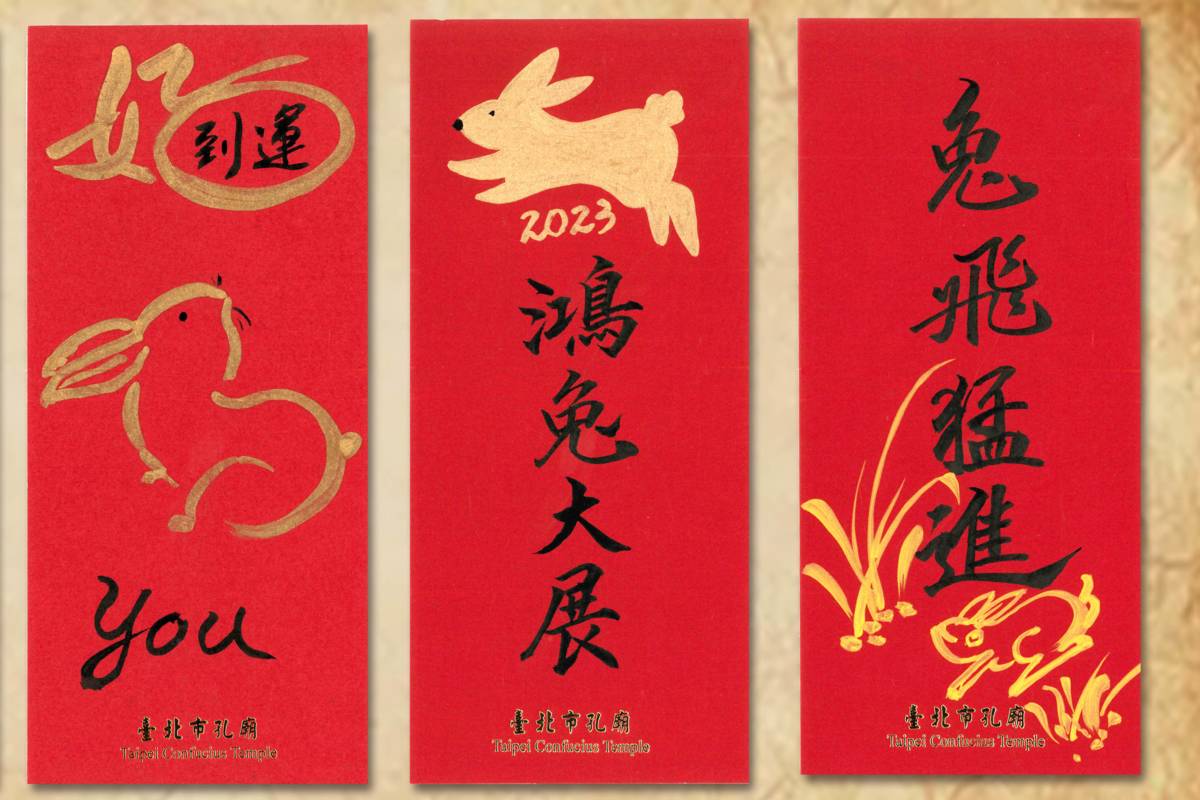 好運到
you
臺北市孔廟
Taipei Confucius Temple
2023
鴻兔大展
臺北市孔廟
Taipei Confucius Temple
兔飛猛進
臺北市孔廟
Taipei Confucius Temple